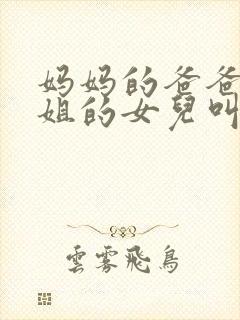 妈妈的爸爸
姐的女兒叫
雲霧飛鳥